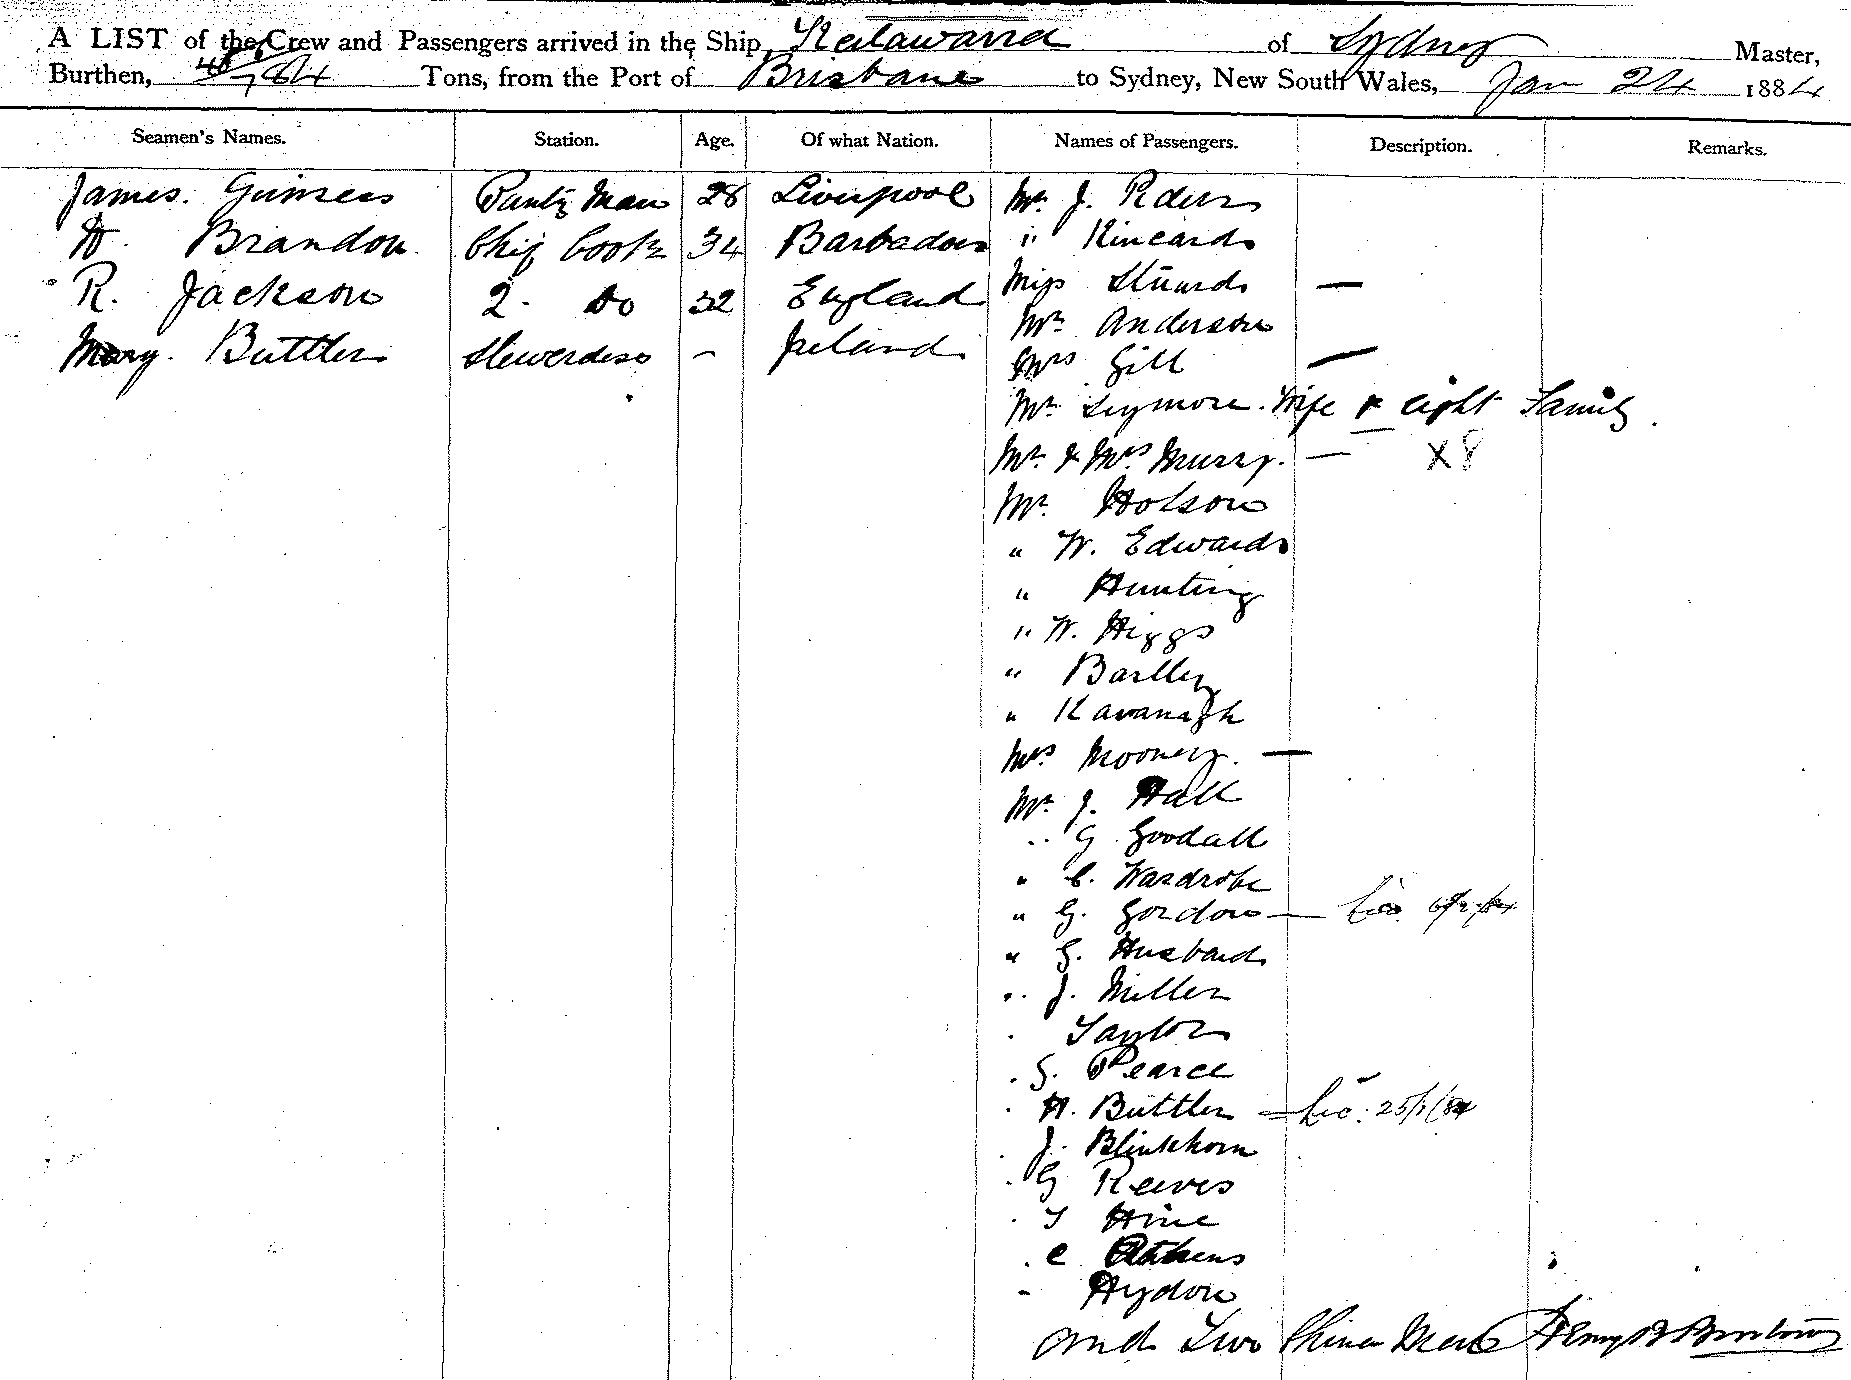 A LIST of the Crew and Passengers arrived in the Ship Keilawarra of Sydney Master,
Burthen, 784 Tons, from the Port of Brisbane to Sydney, New South Wales, Jan 24 1884
Seamen's Names. Station. Age. Of what Nation. Names of Passengers. Description. Remarks.
James. Pantry Man 28 Liverpool Mr. J.
Brandon Chief Cook 34 Barbadoes " Kincards
R. Jackson 2. Do 32 England Miss —
Mr. Anderson
Mary. Buttler Stewerdess - Ireland Mrs Gill —
Mr. Seymore. Wife & eight Family.
Mr. & Mrs. Murry. — X 8
Mr. Hobson
" W. Edwards
" Hunting
" W. Higgs
" Bartley
" Kavanagh
Mrs. Mooney. —
Mr. J. Hall
" G Goodall
" C. Wardrobe
" G. Gordon —
" G. Husband
" J. Miller
" Taylor
" G. Pearce
" H. Buttler — 25/1/84
" J. Blinkhorn
" G Reeves
" T Hine
" C
" Hydon
and Two China Men Henry